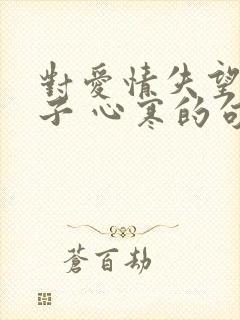 對愛情失望
子 心寒的句
蒼百劫